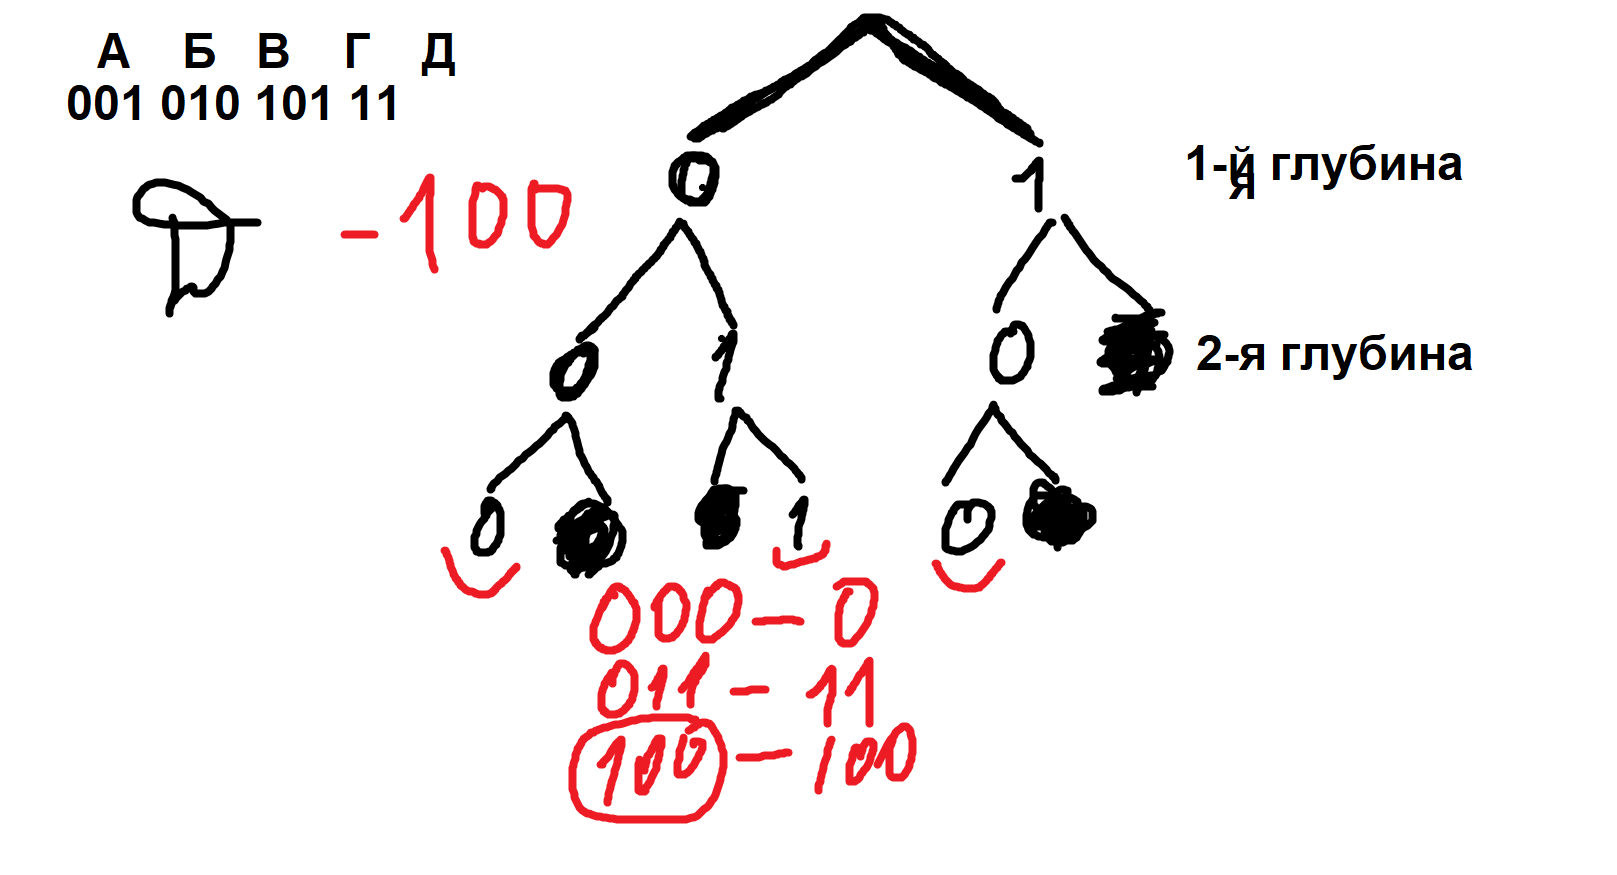 А Б В Г Д
001 010 101 11
Д - 100
0 1
1-й глубина
я
0 1 0
2-я глубина
0 1 0
000 - 0
011 - 11
100 - 100